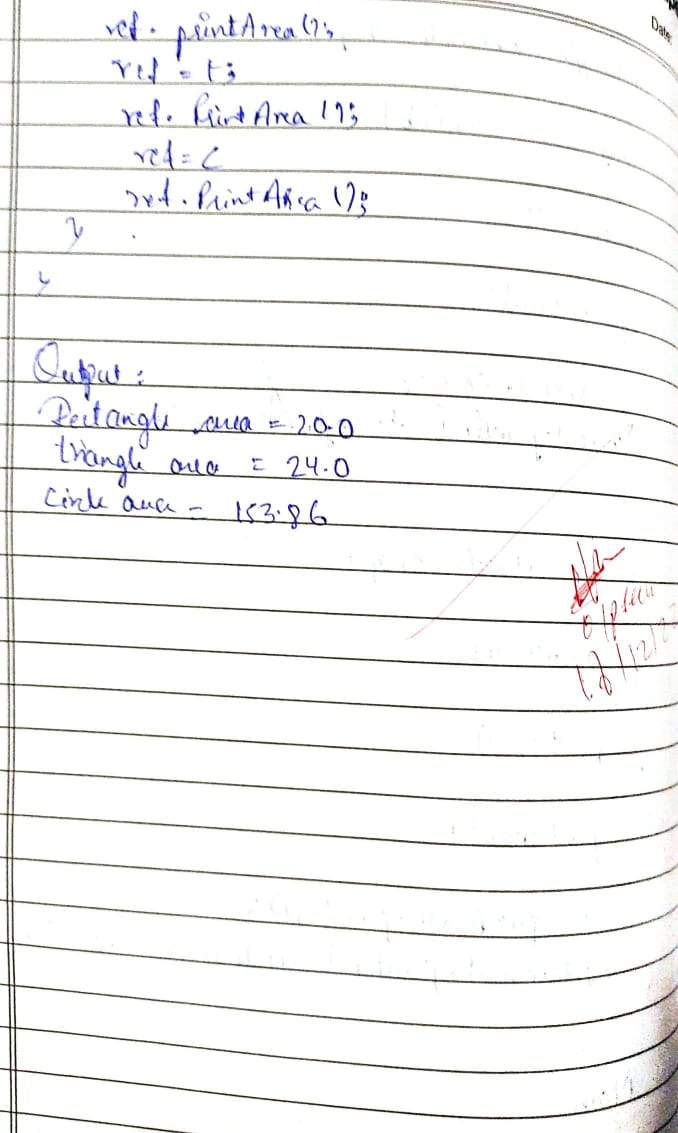 Date
ref. printArea();
ref = t;
ref. PrintArea ();
ref = C
ref. PrintArea ();
}
}
Output:
Rectangle area = 20.0
triangle area = 24.0
Circle area = 153.86